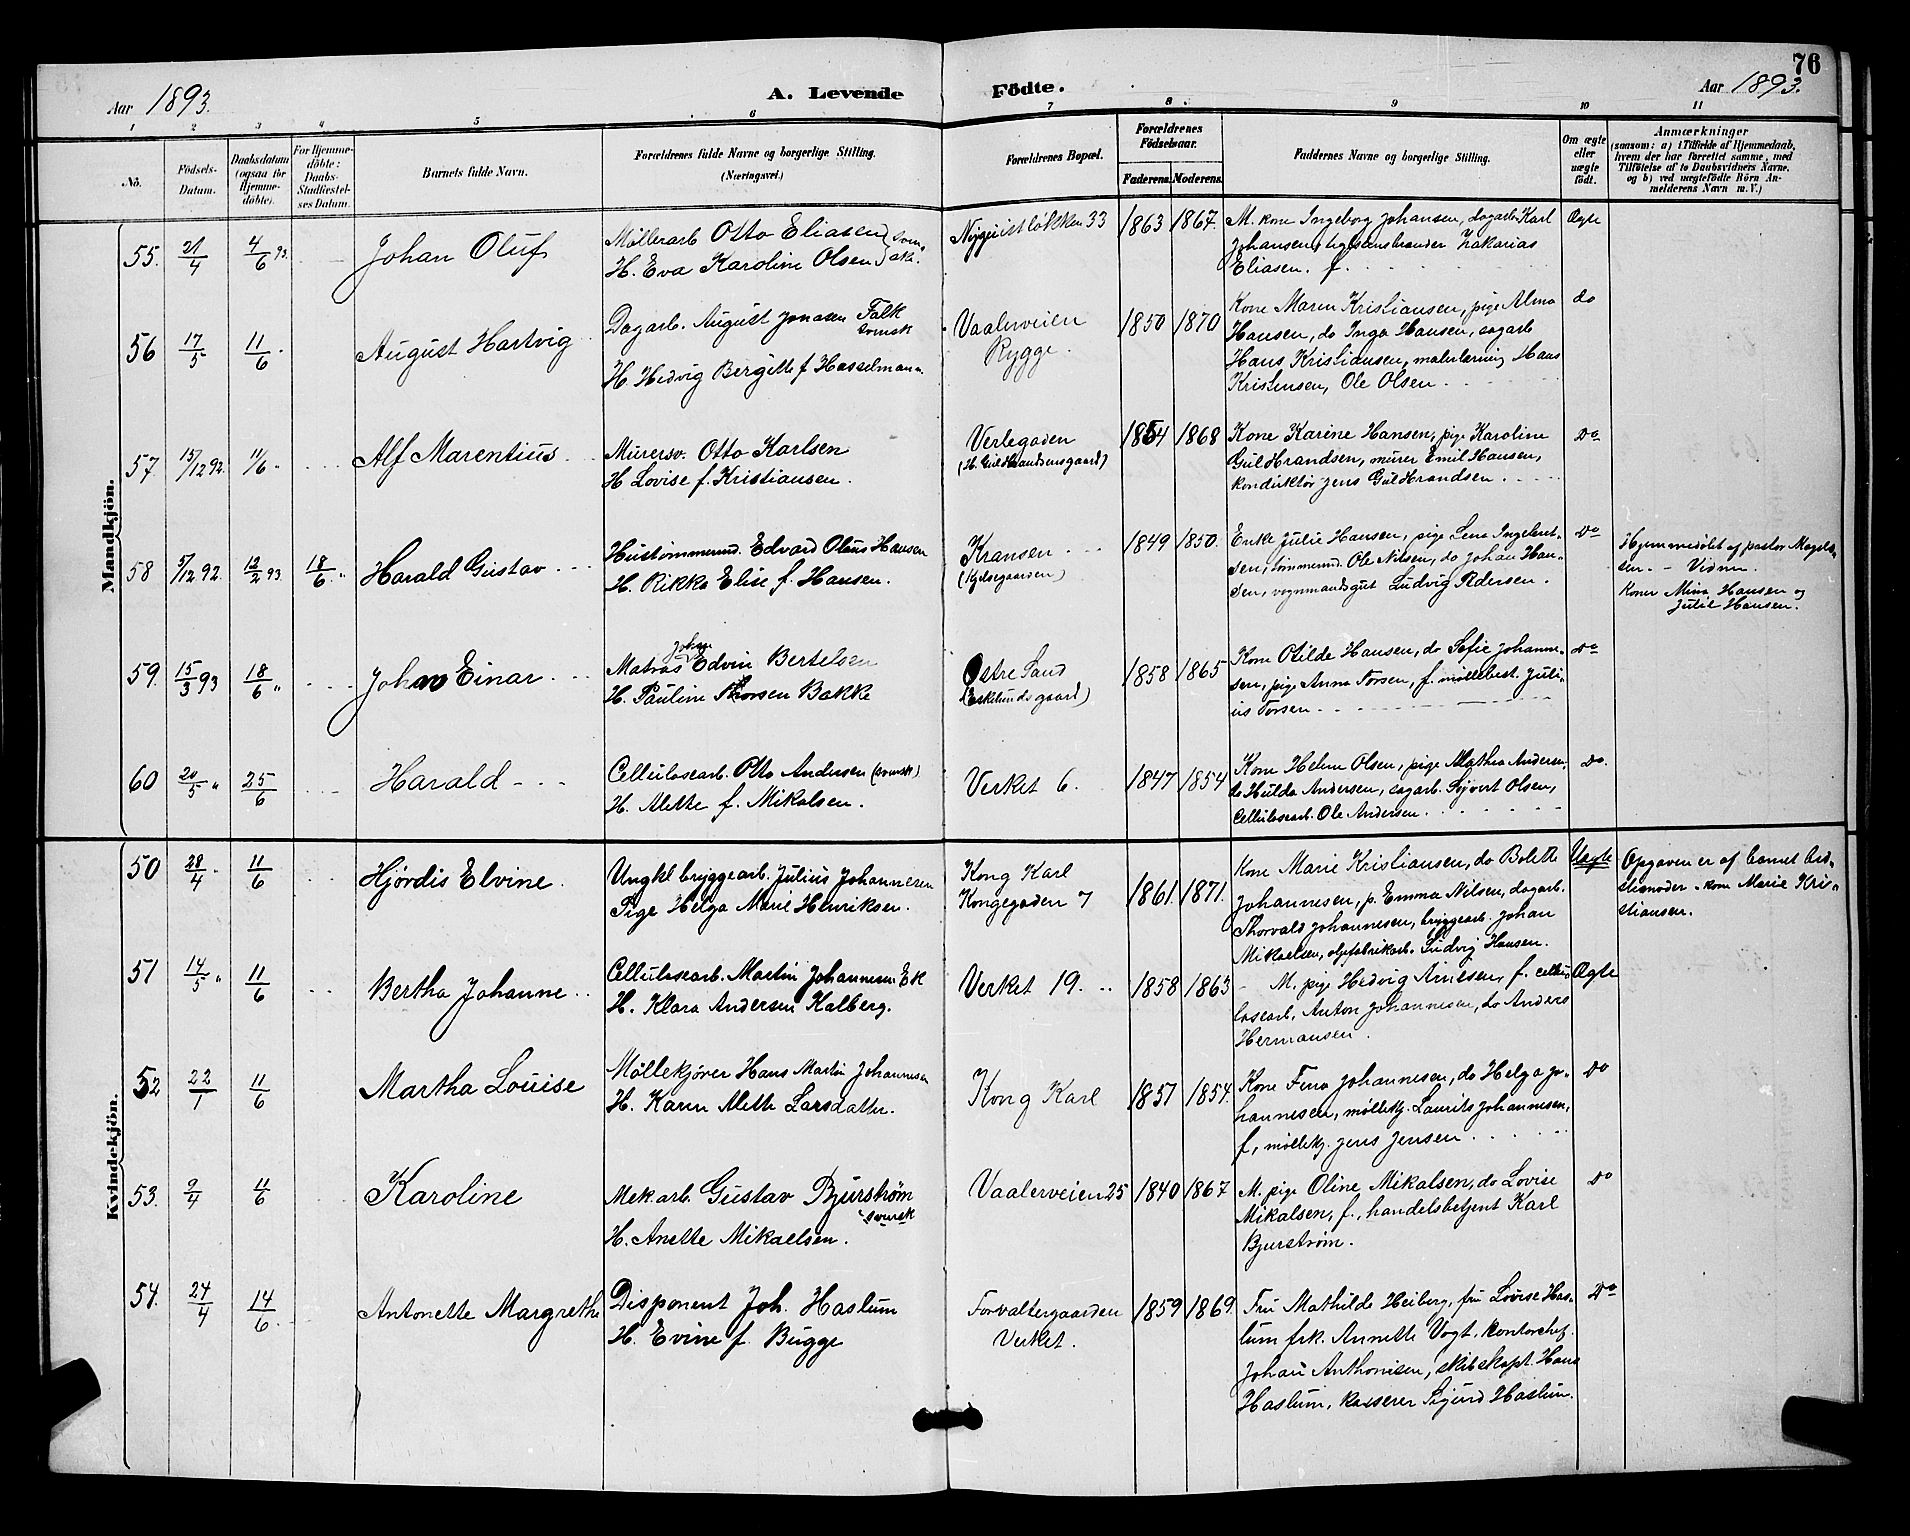 76
Aar 1893.
A. Levende
Födte.
Aar 1893.
1 2 3 4 5 6 7 8 9 10 11
No.
Födsels-
Datum.
Daabsdatum
(ogsaa for
Hjemme-
döbte).
For Hjemme-
döbte:
Daabs-
Stadfæstel-
ses Datum.
Barnets fulde Navn.
Forældrenes fulde Navne og borgerlige Stilling.
(Næringsvei.)
Forældrenes Bopæl.
Forældrenes
Födselsaar.
Faderens. Moderens.
Faddernes Navne og borgerlige Stilling.
Om ægte
eller
uægte
födt.
Anmærkninger
(saasom: a) i Tilfælde af Hjemmedaab,
hvem der har forrettet samme, med
Tilföielse af to Daabsvidners Navne,
og b) ved uægtefödte Börn An-
melderens Navn m. V.)
Mandkjön.
55. 21/4 4/6 93. Johan Oluf
Møllerarb Otto Eliasen
H. Eva Karoline Olsen
33
1863 1867.
M. kone Ingeborg Johansen, dagarb Karl
Johansen, Zakarias
Eliasen. f.
Ægte
56 17/5 11/6 August Hartvig
Dagarb. August Jonasen Falk
svensk
H. Hedvig Bergitte f Hasselmann.
Vaalerveien
Rygge.
1850 1870
Kone Maren Kristiansen, pige Alma
Hansen, do Inga Hansen, sagarb
Hans Kristiansen, malerlærling Hans
Kristensen, Ole Olsen.
do
57. 15/12 92. 11/6 " Alf Marentius
Murersv. Otto Karlsen
H Lovise f. Kristiansen.
Verlegaden
(H. Guldbrandsensgaard)
1854 1868
Kone Karine Hansen, pige Karoline
Guldbrandsen, murer Emil Hansen,
konduktør Jens Guldbrandsen.
Do
58 5/12 92. 12/2 93. 18/6. " Harald Gustav
Hustømmermd. Edvard Olaus Hansen
H. Rikka Elise f. Hansen.
Kransen
1849 1850.
Enke Julie Hansen, pige Lena Ingebret-
sen, tømmermd. Ole Nilsen, do Johan Han-
sen, vognmandsgut Ludvig Pedersen.
Do
Hjemmedøbt af pastor Magels-
sen. - Vidner
Koner Mina Hansen og
Julie Hansen.
59. 15/3 93 18/6 " Johan Einar
Johan
Matros Edvin Bertelsen
H. Pauline Thorsen Bakke
Østre Sand
(Eskelundsgaard)
1858 1865
Kone Otilde Hansen, do Sofie Johanne-
sen, pige Anna Torsen, f. møllebest. Juli-
us Torsen
Do
60 20/5 " 25/6 Harald
Cellulosearb. Otto Andersen (svensk)
H. Alette f. Mikalsen.
Verket 6.
1847 1854
Kone Helene Olsen, pige Mathea Andersen,
do Hulda Andersen, sagarb. Sigvert Olsen,
Cellulosearb. Ole Andersen.
Do.
Kvindekjön.
50 28/4 " 11/6 Hjørdis Elvine.
Ungkl bryggearb. Julius Johannesen
Pige Helga Marie Henriksen.
Kong Karl
Kongegaden 7
1861. 1871.
Kone Marie Kristiansen, do Bolette
Johannesen, p. Emma Nilsen, dagarb.
Thorvald Johannesen, bryggearb. Johan
Mikaelsen, oljefabrikarb. Ludvig Hansen.
Uægte
Opgaven er af barnets Bed-
stemoder - kone Marie Kri-
stiansen.
51 14/5 " 11/6 Bertha Johanne
Cellulosearb. Martin Johannesen Ek
H. Klara Andersen Kalberg.
Verket 19.
1858 1863
M. pige Hedvig Arnesen, f. cellu-
losearb. Anton Johannesen, do Anders
Hermansen.
Ægte
52 22/1 11/6 Martha Louise
Møllekjører Hans Martin Johannesen
H. Karen Alette Larsdatter.
Kong Karl
1857 1854.
Kone Fina Johannesen, do Helga Jo-
hannesen, møllekj. Laurits Johannesen,
f, møllekj. Jens Jensen
Do
53. 9/4 11/6 Karoline
Mek. arb. Gustav Bjurstrøm
svensk
H. Anette Mikaelsen.
Vaalerveien 25
1840 1867
M. pige Oline Mikalsen, do Lovise
Mikalsen, f., handelsbetjent Karl
Bjurstrøm.
Do
54. 24/4 14/6. Antonette Margrethe
Disponent Joh. Haslum
H. Evine f. Bugge
Forvaltergaarden
Verket.
1859 1869.
Fru Mathilde Heiberg, fru Lovise Has-
lum frk. Annette Vogt, kontorchef.
Johan Anthonisen, skibskapt. Hans
Haslum, kasserer Sigurd Haslum.
Do